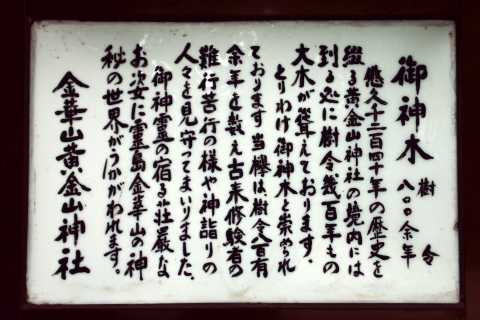 御神木 樹令
八〇〇余年
悠久十二百四十年の歴史を
綴る黄金山神社の境内には
到る処に樹令幾百年もの
大木が聳えております。
とりわけ御神木と崇められ
ております当欅は、樹令八百有
余年を数え古来修験者の
難行苦行の様や神詣りの
人々を見守ってまいりました。
御神霊の宿る荘厳な
お姿に霊島金華山の神
秘の世界がうかがわれます。
金華山黄金山神社